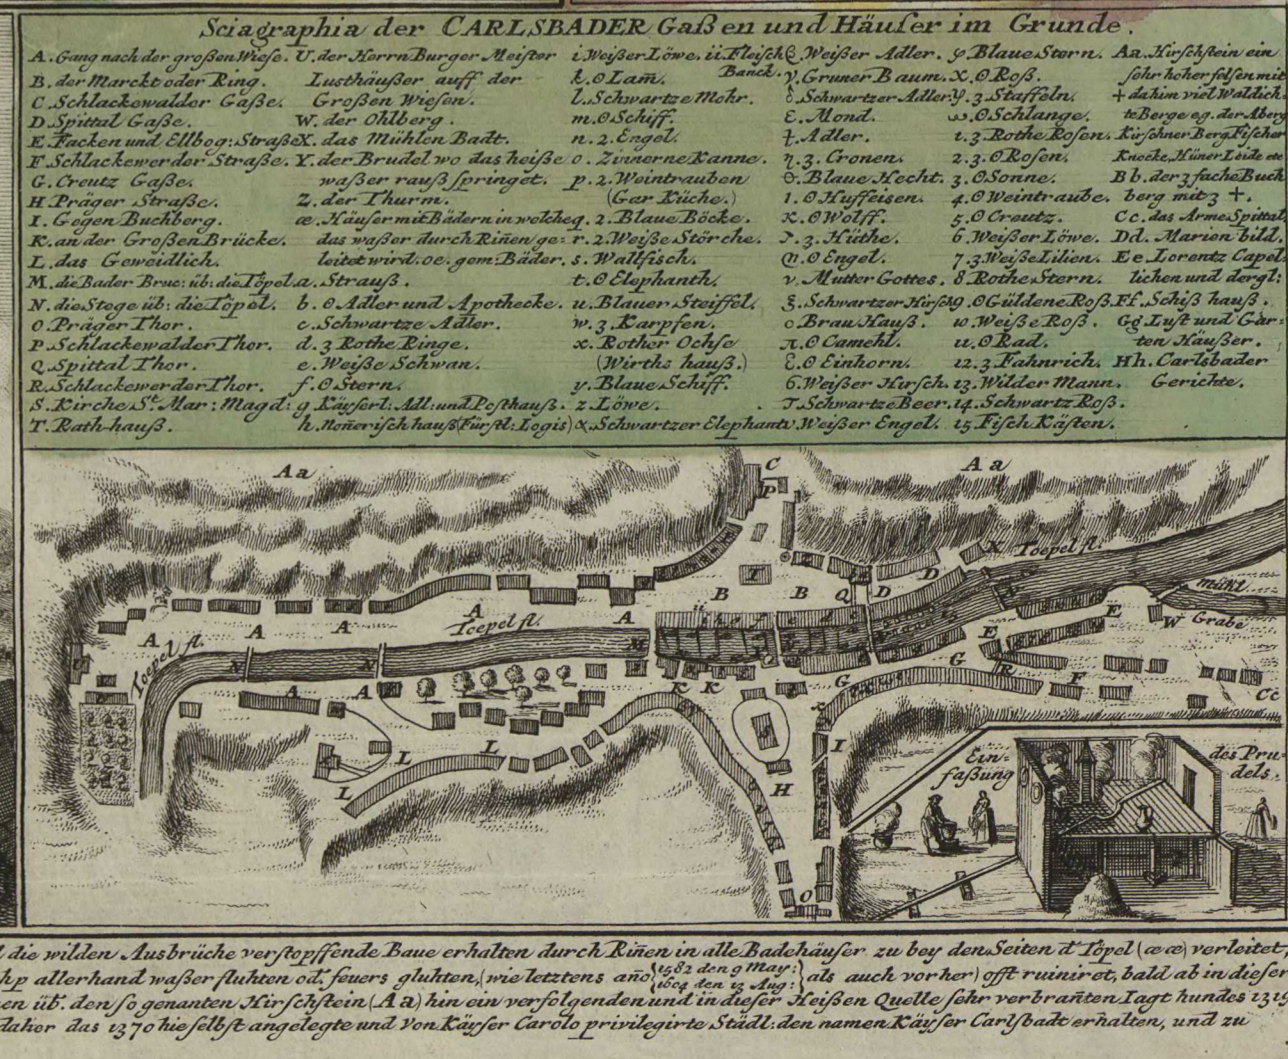 Sciagraphia der CARLSBADER Gaßen und Häuſer im Grunde.
A. Gang nach der großen Wieſe.
B. der Marckt oder Ring.
C. Schlackewalder Gaße.
D. Spittal Gaße.
E. Facken und Ellbog: Straße
F. Schlackewerder Straße.
G. Creutz Gaße.
H. Präger Straße.
I. Gegen Buchberg.
K. an der Großen Brücke.
L. das Geweidlich.
M. die Bader Bruc: üb: die Töpel.
N. die Stege üb: die Töpel.
O. Präger Thor.
P. Schlackewalder Thor.
Q. Spittal Thor.
R. Schlackewerder Thor.
S. Kirche St. Mar: Magd:
T. Rath-hauß.
U. der Herrn Burger Meiſter
Luſthäußer auff der
Großen Wieſen.
W. der Ohlberg.
X. das Mühlen Badt.
Y. der Brudel wo das heiße
waßer rauß ſpringet.
Z. der Thurm.
æ. Häuſer mit Bädern in welche
das waßer durch Riñen ge:
leitet wird: oe. gem: Bäder.
a. Strauß.
b. ʘ Adler und Apothecke.
c. Schwartze Adler.
d. 3 Rothe Ringe.
e. Weiße Schwan.
f. ʘ Stern.
g Käyſerl: Adl: und Poſthauß.
h. Noñeriſch hauß (Fürſtl: Logis)
i. Weißer Löwe. ii. Fleiſch
Banck.
k. ʘ Lam̃.
l. Schwartze Mohr.
m. ʘ Schiff.
n. 2. Engel.
o. Zinnerne Kanne.
p. 2. Weintrauben
(Gar Küche.)
q. 2. Blaue Böcke.
r. 2. Weiße Störche.
s. Wallfiſch.
t. ʘ Elephanth.
u. Blauer Steiffel.
w. 3. Karpfen.
x. Rother Ochſe
(Wirths hauß.)
y. Blaue Schiff.
z. Löwe.
α. Schwartzer Elephant
β. Weißer Adler.
γ. Gruner Baum.
δ. Schwartzer Adler.
ε. Mond.
ϯ. Adler.
η. 3. Cronen.
θ. Blaue Hecht.
ι. ʘ Huffeisen.
κ. ʘ Wolff.
λ. 3. Hüthe.
ʘ Engel.
ν. Mutter Gottes.
ξ. Schwartzer Hirſch
ο Brau Hauß.
π. ʘ Camehl.
ʘ Einhorn.
6. Weißer Hirſch.
τ. Schwartze Beer.
υ Weißer Engel.
φ Blaue Stern.
χ. ʘ Roß.
ψ. 3. Staffeln.
ω. ʘ Schlange.
1. 3. Rothe Rosen.
2. 3. ʘ Roſen.
3. ʘ Sonne.
4. ʘ Weintraube.
5. ʘ Creutz.
6. Weißer Löwe.
7. 3. Weiße Lilien.
8 Rothe Stern.
9. ʘ Güldene Roß.
10. Weiße Roß.
11. ʘ Rad.
12. 3 Fahnrich.
13. Wilder Mann.
14. Schwartz Roß.
15. Fiſch Käſten.
Aa. Hirſchſtein ein
ſehr hoher felſen mit
+ dahim viel Waldich
te Berge eg. der Aberg
Kirſchner Berg Fiſcher
Knocke, Hüner Leide etc
Bb. der 3fache Buch
berg mit 3 +.
Cc. das Arme Spittal
Dd. Marien bild.
Ee. Lorentz Capel
lichen und dergl:
Ff. Schiß hauß.
Gg. Luſt und Gär-
ten Häußer.
Hh. Carlsbader
Gerichte.
Aa
C
P
Aa
X
Toepel fl.
Mühl
Grabe
W
I
B
B
Q
D
D
A
A
A
A
A
Toepel fl.
Toepel fl.
M
N
N
E
E
G
R
F
Cc
A
A
K
K
G
L
L
L
S
H
I
O
Ein-
faßung
des Pru-
dels.
die wilden Ausbrüche verſtopffende Baue erhalten durch Riñen in alle Badehäuſer zu bey den Seiten d Töpel (æ æ) verleitet,
allerhand waßer fluhten od. feuers gluhten, (wie letztens año {1582 den 9 May: 1604 den 13 Aug:} als auch vorher) offt ruiniret, bald ab in dieſer
üb. den ſo genanten Hirſchſtein (Aa) hin ein verfolgenden und in dieſer Heißen Quelle ſehr verbrañten Iagt hundes 1319
daher das 1370 hie ſelbſt angelegte und von Käyſer Carolo privilegirte Städl: den namen Käyſer Carlſbadt erhalten, und zu